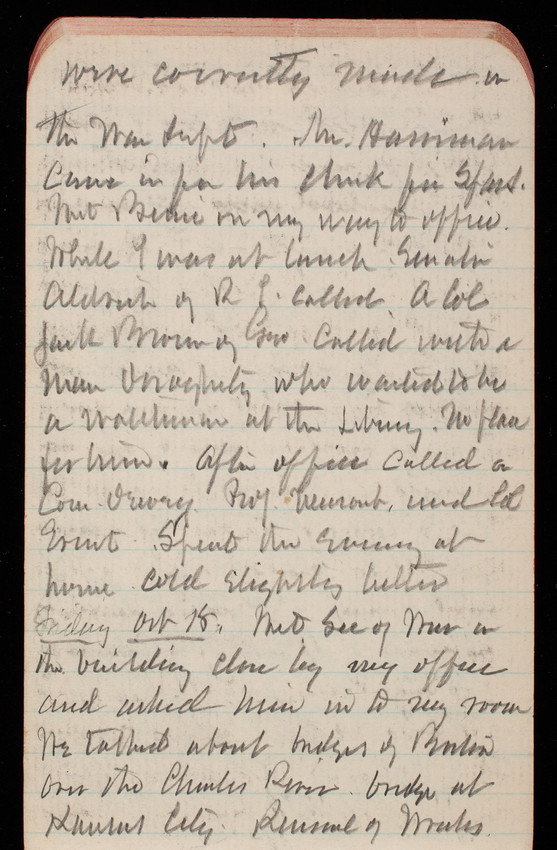 were correctly made in
the War Dept. Mr. Harriman
Came in for his check for Sept.
Met Bernie on my way to office.
While I was at lunch Senator
Aldrich of R I. called. A Col
Jack Brown of Geo called with a
man Doragherty who wanted to be
a watchman at the Library. No place
for him. After office called on
Com. Dewey Prof. and Col
Ernst. Spent the evening at
home cold slightly better
Friday Oct 15. Met Sec of War in
the building close by my office
and asked him in to my room
We talked about bridges of Boston
over the Charles River. bridge at
Kansas City. Removal of Wrecks.